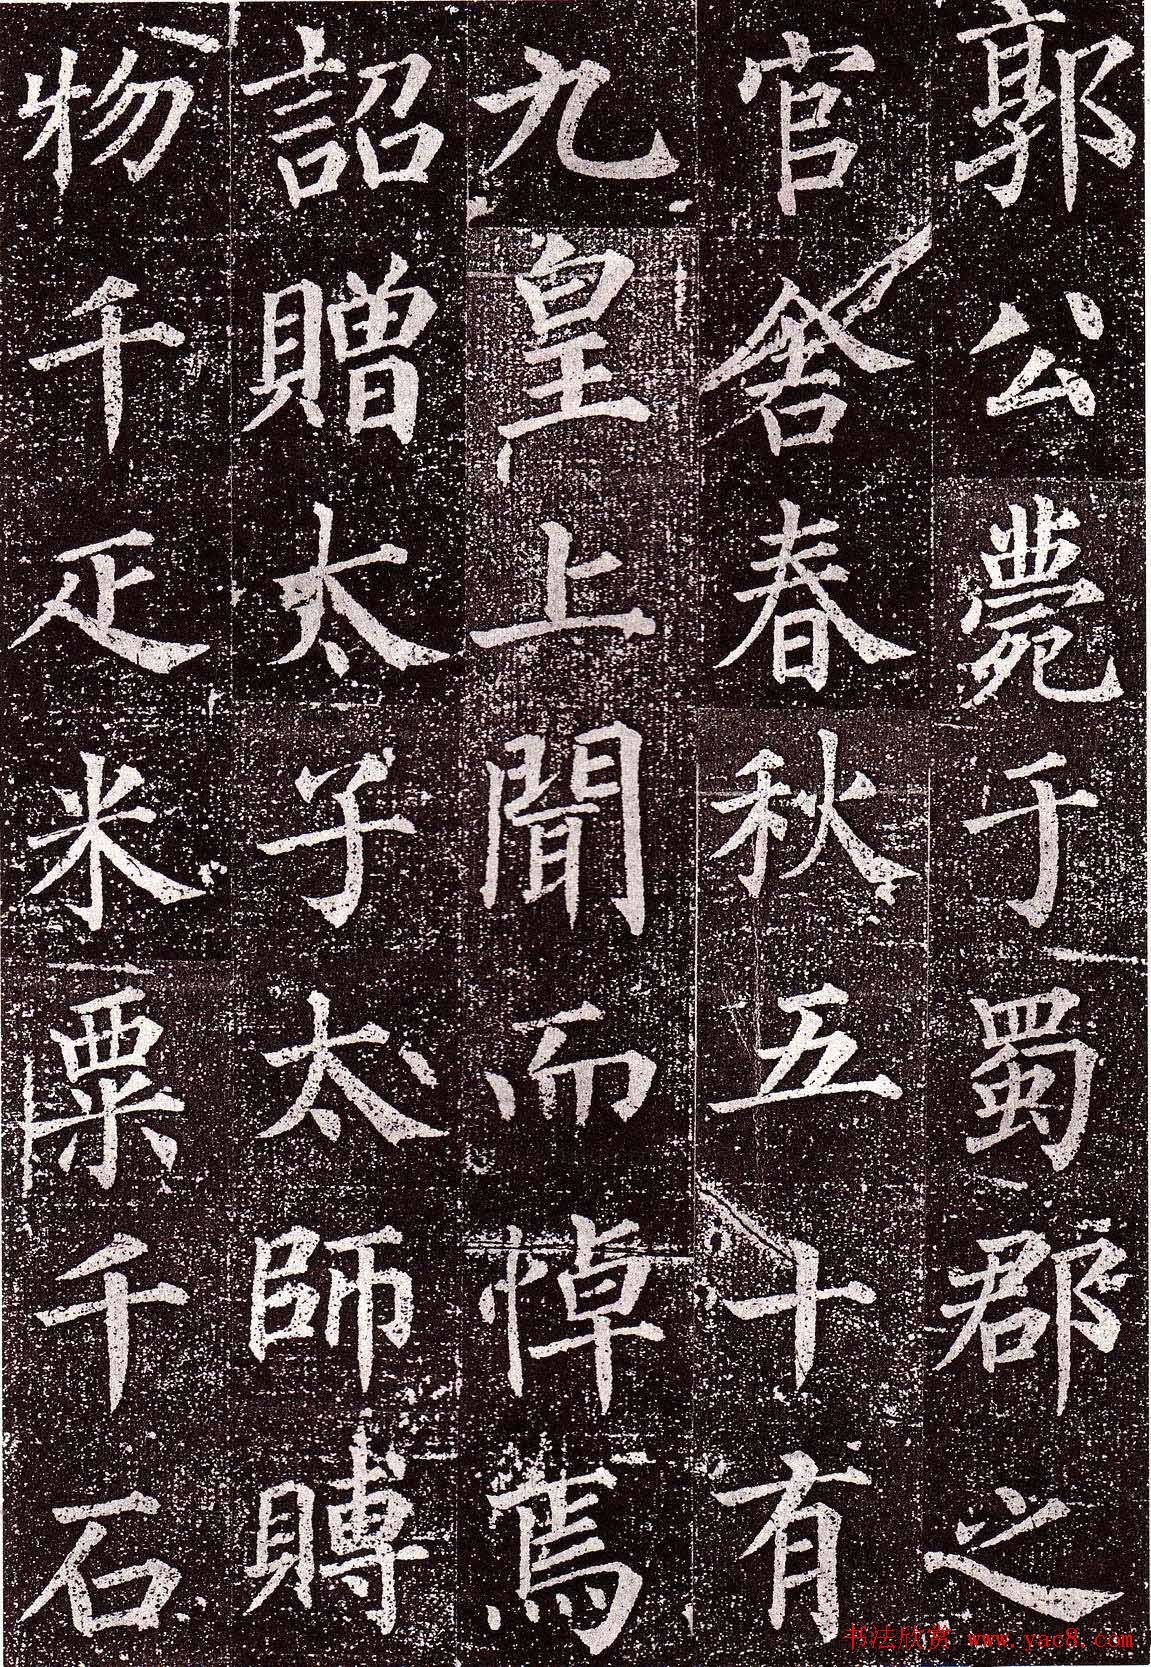 郭公薨于蜀郡之
官舍春秋五十有
九皇上聞而悼焉
詔贈太子太師賻
物千疋米粟千石
书法欣赏 www.yac8.com